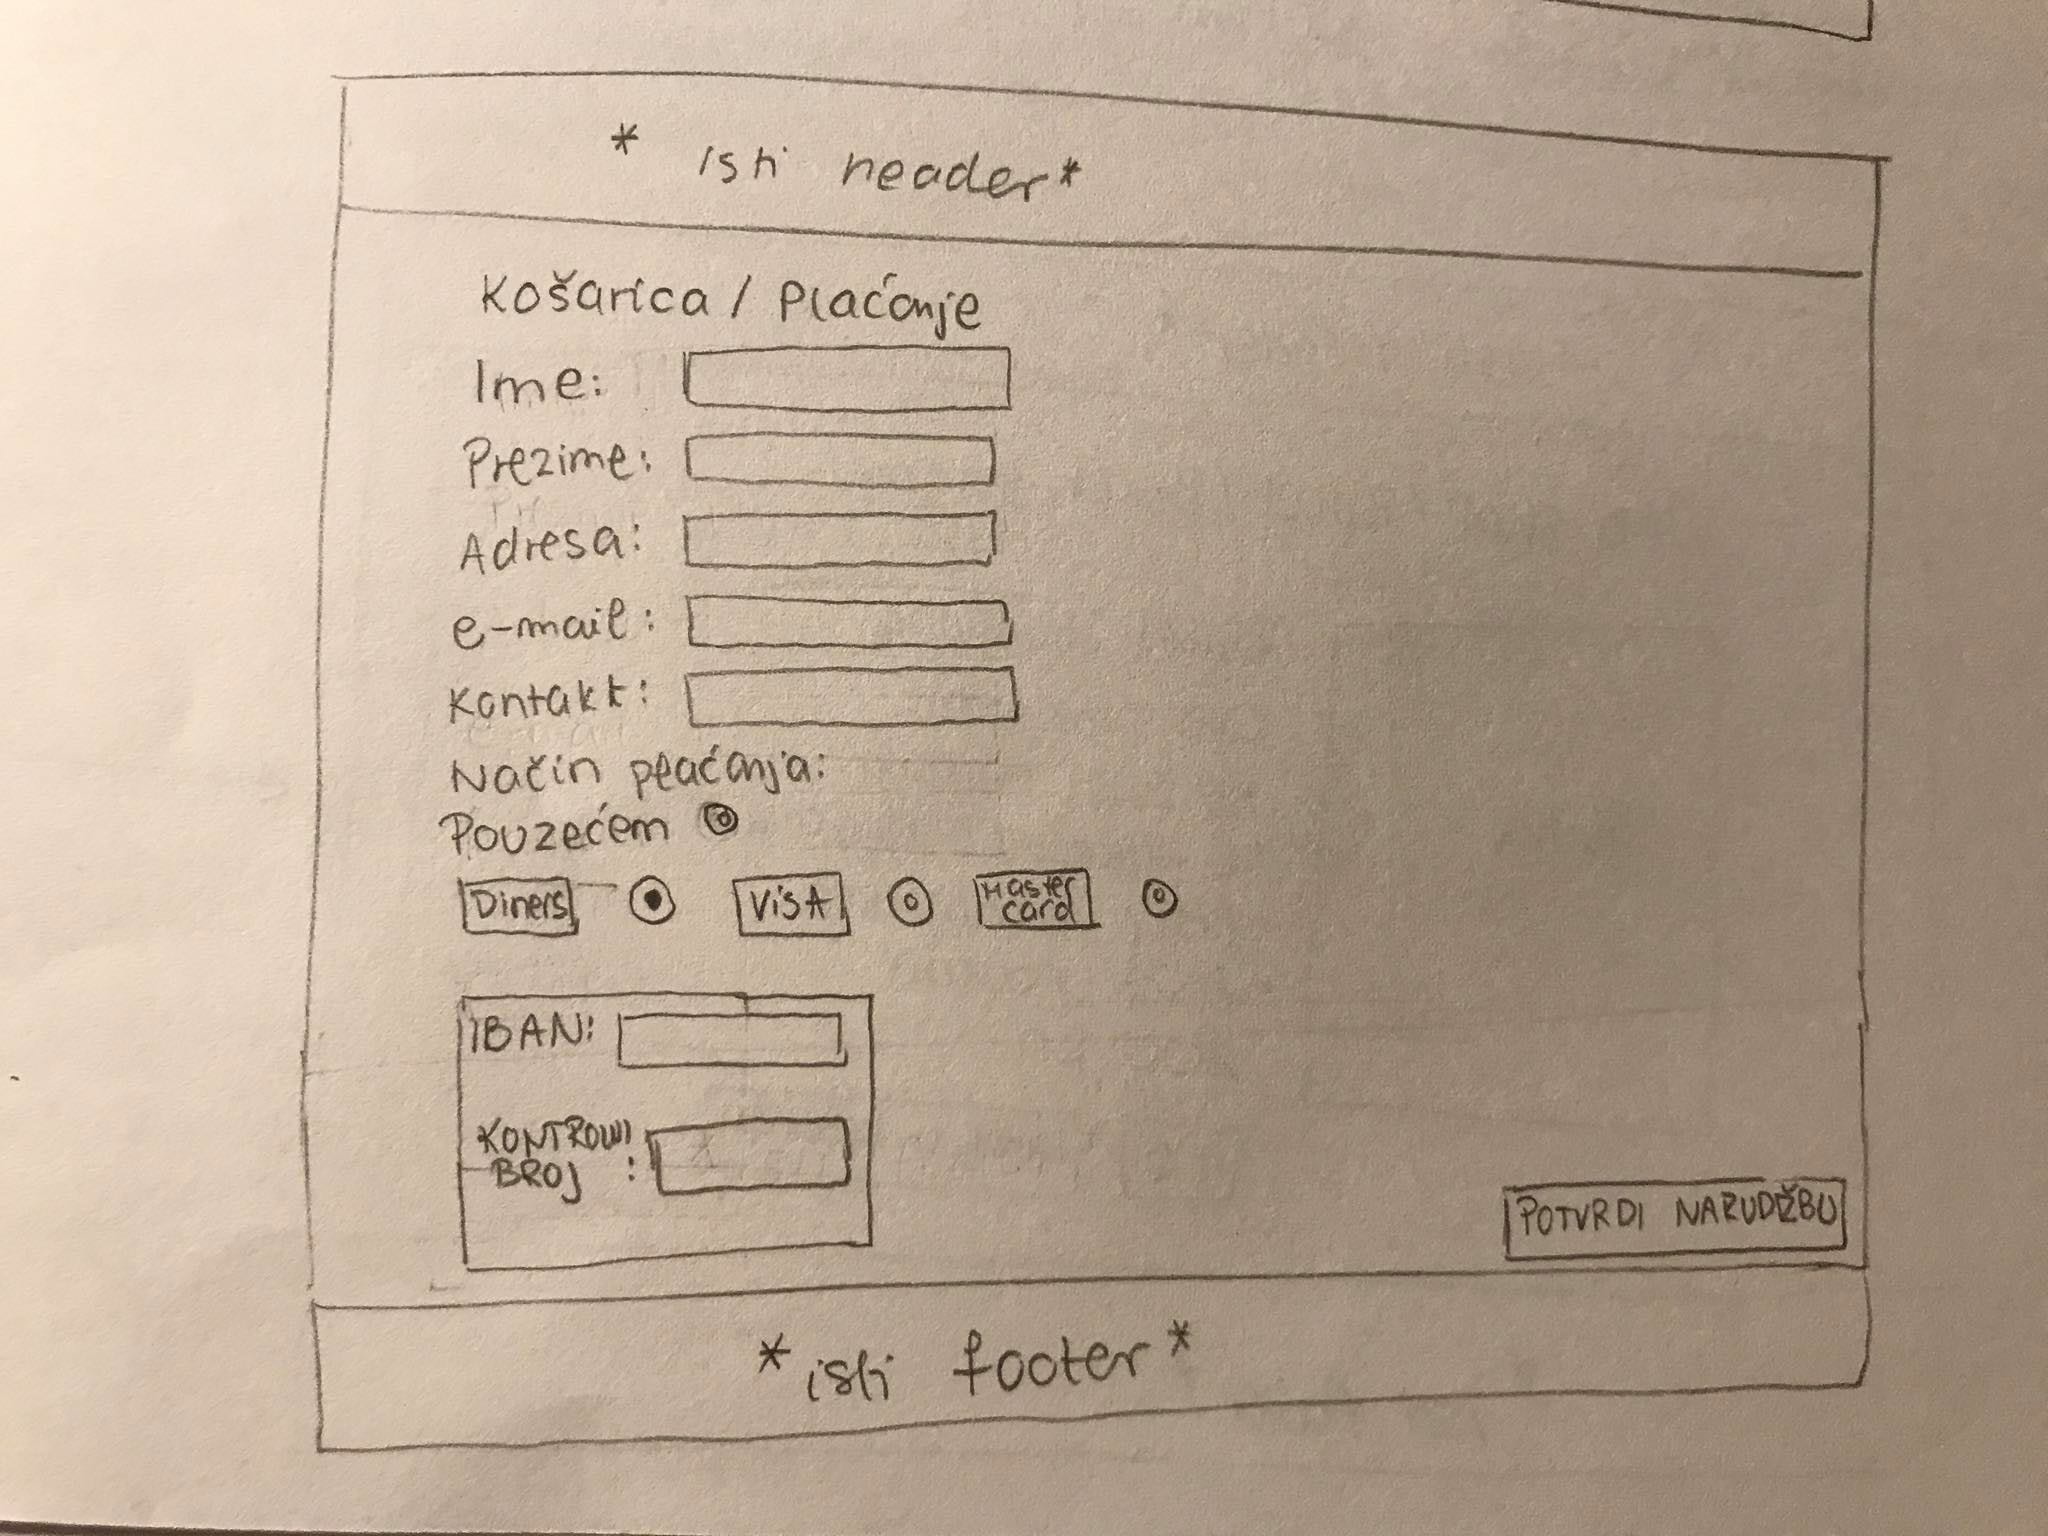 * isti header *
Košarica / Plaćanje
Ime:
Prezime:
Adresa:
e-mail:
Kontakt:
Način plaćanja:
Pouzećem
Diners VISA Master
card
IBAN:
KONTROLNI
BROJ :
POTVRDI NARUDŽBU
* isti footer *